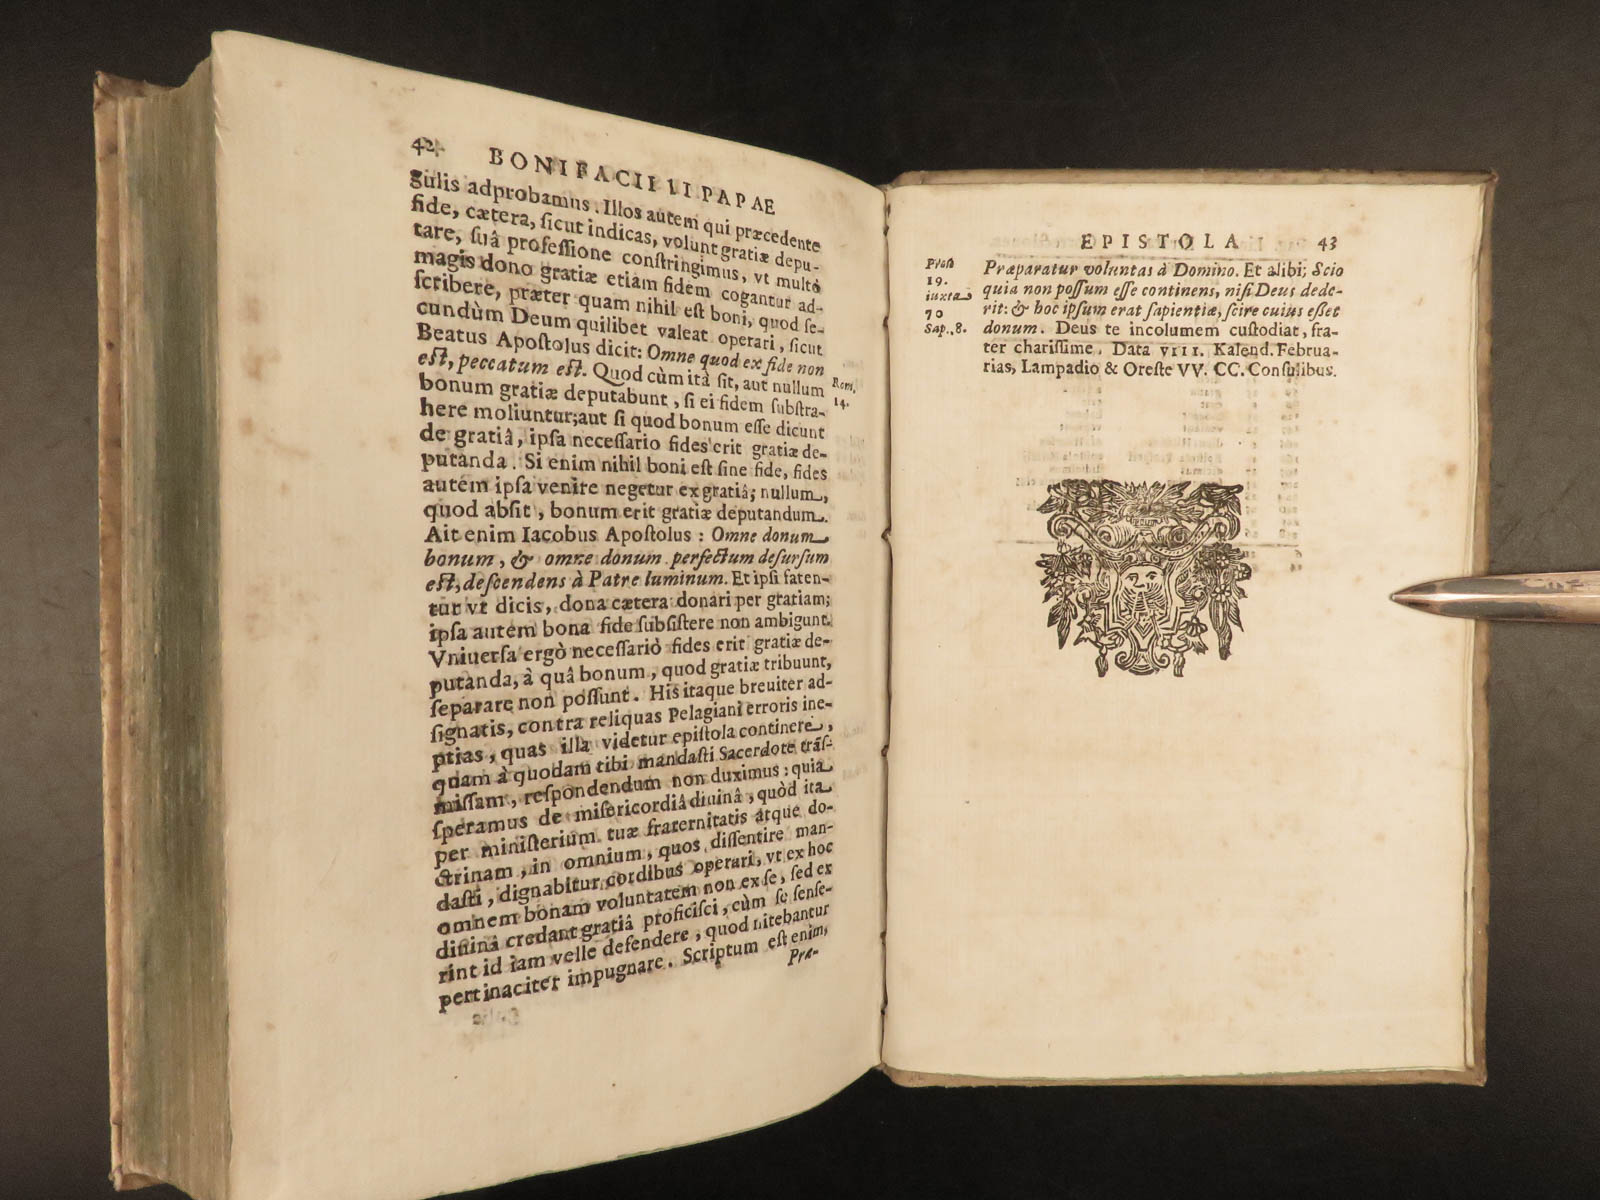 42 BONIFACII II PAPAE
gulis adprobamus. Illos autem qui præcedente
fide, cætera, ſicut indicas, volunt gratiæ depu-
tare, ſuâ profeſſione conſtringimus, vt multò
magis dono gratiæ etiam fidem cogantur ad-
ſcribere, præter quam nihil eſt boni, quod ſe-
cundùm Deum quilibet valeat operari, ſicut
Beatus Apoſtolus dicit: Omne quod ex fide non
eſt, peccatum eſt. Quod cùm ità ſit, aut nullum
Rom.
14.
bonum gratiæ deputabunt, ſi ei fidem ſubſtra-
here moliuntur; aut ſi quod bonum eſſe dicunt
de gratiâ, ipſa neceſſario fides erit gratiæ de-
putanda. Si enim nihil boni eſt ſine fide, fides
autem ipſa venire negetur ex gratiâ; nullum,
quod abſit, bonum erit gratiæ deputandum.
Ait enim Iacobus Apoſtolus: Omne donum
bonum, & omne donum perfectum deſurſum
eſt, deſcendens à Patre luminum. Et ipſi faten-
tur vt dicis, dona cætera donari per gratiam;
ipſa autem bona fide ſubſiſtere non ambigunt.
Vniuerſa ergò neceſſariò fides erit gratiæ de-
putanda, à quâ bonum, quod gratiæ tribuunt,
ſeparare non poſſunt. His itaque breuiter ad-
ſignatis, contra reliquas Pelagiani erroris ine-
ptias, quas illa videtur epiſtola continere,
quam à quodam tibi mandaſti Sacerdote trãſ-
miſſam, reſpondendum non duximus: quia
ſperamus de miſericordiâ diuinâ, quòd ita
per miniſterium tuæ fraternitatis atque do-
ctrinam, in omnium, quos diſſentire man-
daſti, dignabitur cordibus operari, vt ex hoc
omnem bonam voluntatem non ex ſe, ſed ex
diuinâ credant gratiâ proficiſci, cùm ſe ſenſe-
rint id iam velle defendere, quod nitebantur
pertinaciter impugnare. Scriptum eſt enim,
Præ-
EPISTOLA I. 43
19.
iuxta
70
Sap. 8.
Præparatur voluntas à Domino. Et alibi; Scio
quia non poſſum eſſe continens, niſi Deus dede-
rit: & hoc ipſum erat ſapientiæ, ſcire cuius eſſet
donum. Deus te incolumem cuſtodiat, fra-
ter chariſſime. Data VIII. Kalend. Februa-
rias, Lampadio & Oreſte VV. CC. Conſulibus.